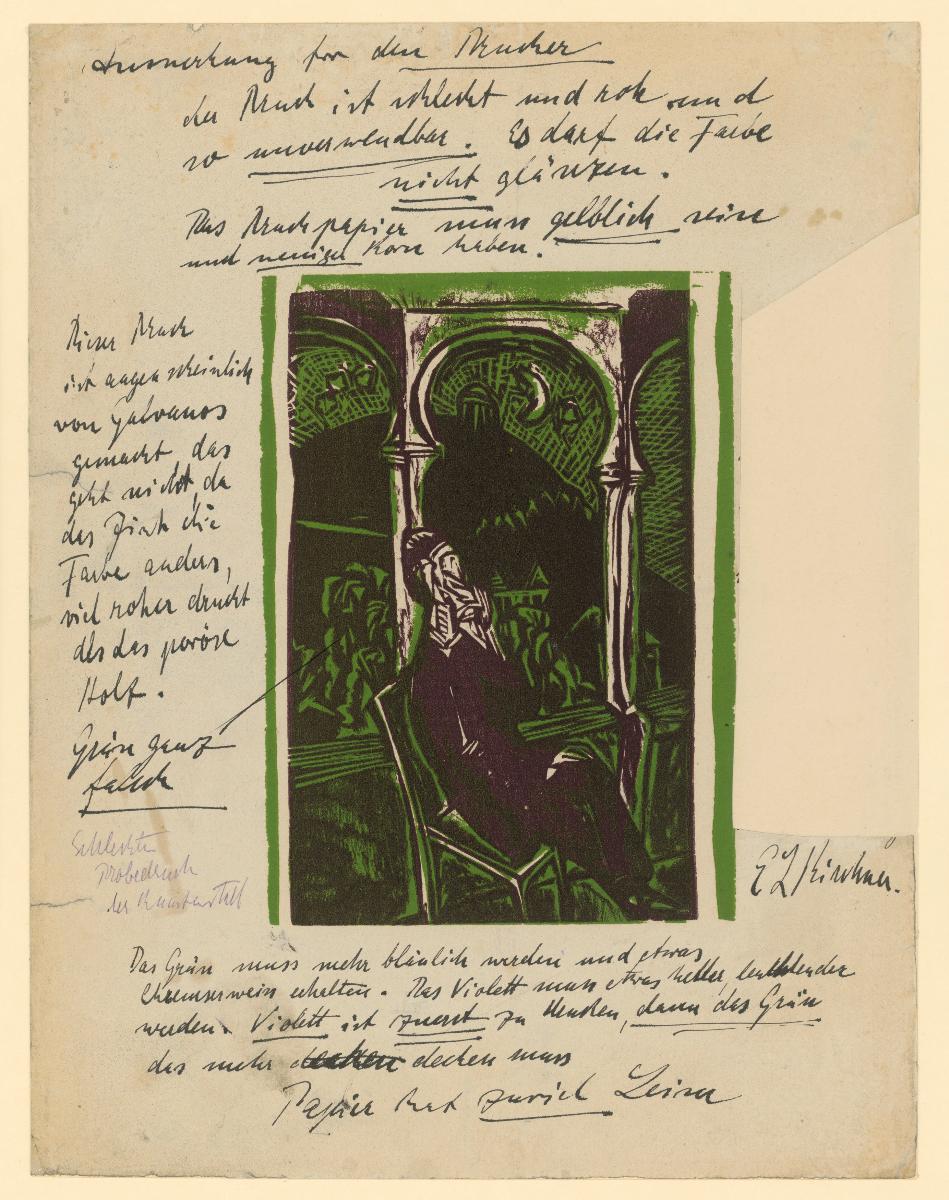 Anmerkung for den Drucker
der Druck ist schlecht und roh und
so unverwendbar. Es darf die Farbe
nicht glänzen.
Das Druckpapier muss gelblich sein
und weniger Korn haben.
Dieser Druck
ist augenscheinlich
von Galvanos
gemacht das
geht nicht, da
das Zink die
Farbe anders,
viel roher druckt
als das poröse
Holz.
Grün ganz
falsch
Schlechter
Probedruck
der Kunstanstalt
E L Kirchner.
Das Grün muss mehr bläulich werden und etwas
Chremserweiss erhalten. Das Violett muss etwas heller, leuchtender
werden. Violett ist zuerst zu drucken, dann das Grün
das mehr decken muss
Papier hat zurück